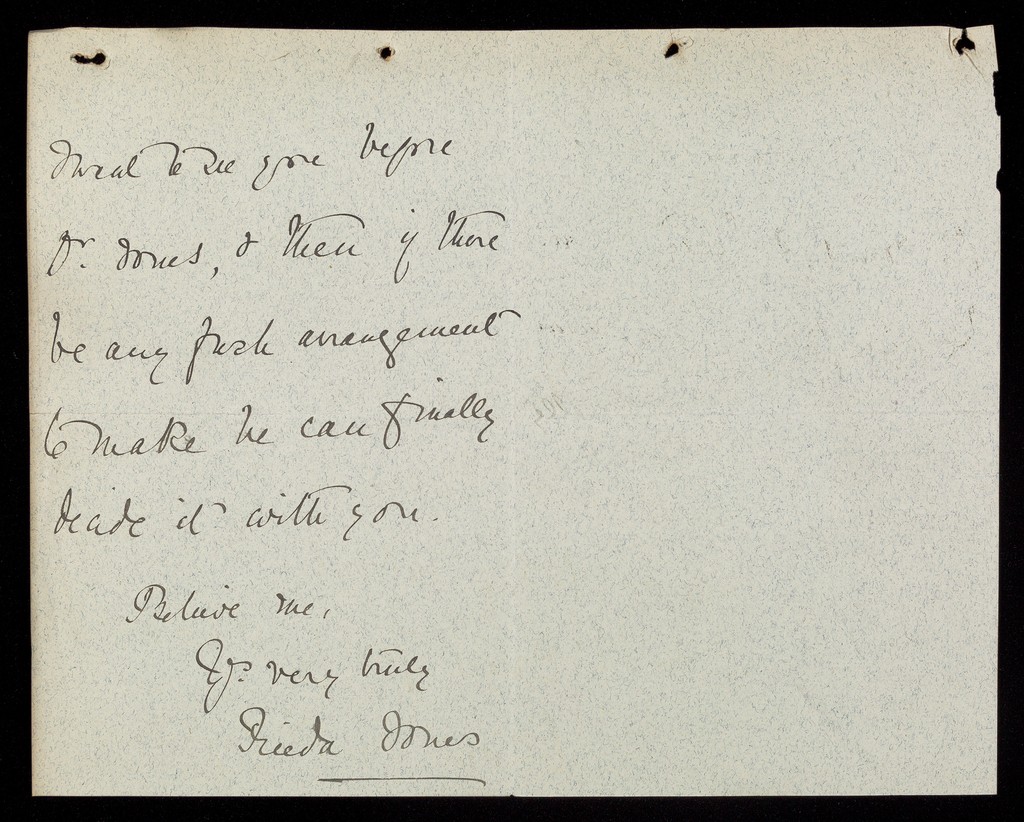 I want to see you before
Dr. Jones, & then if there
be any fresh arrangement
to make he can finally
decide it with you.
Believe me,
Yrs. very truly
Frieda Jones